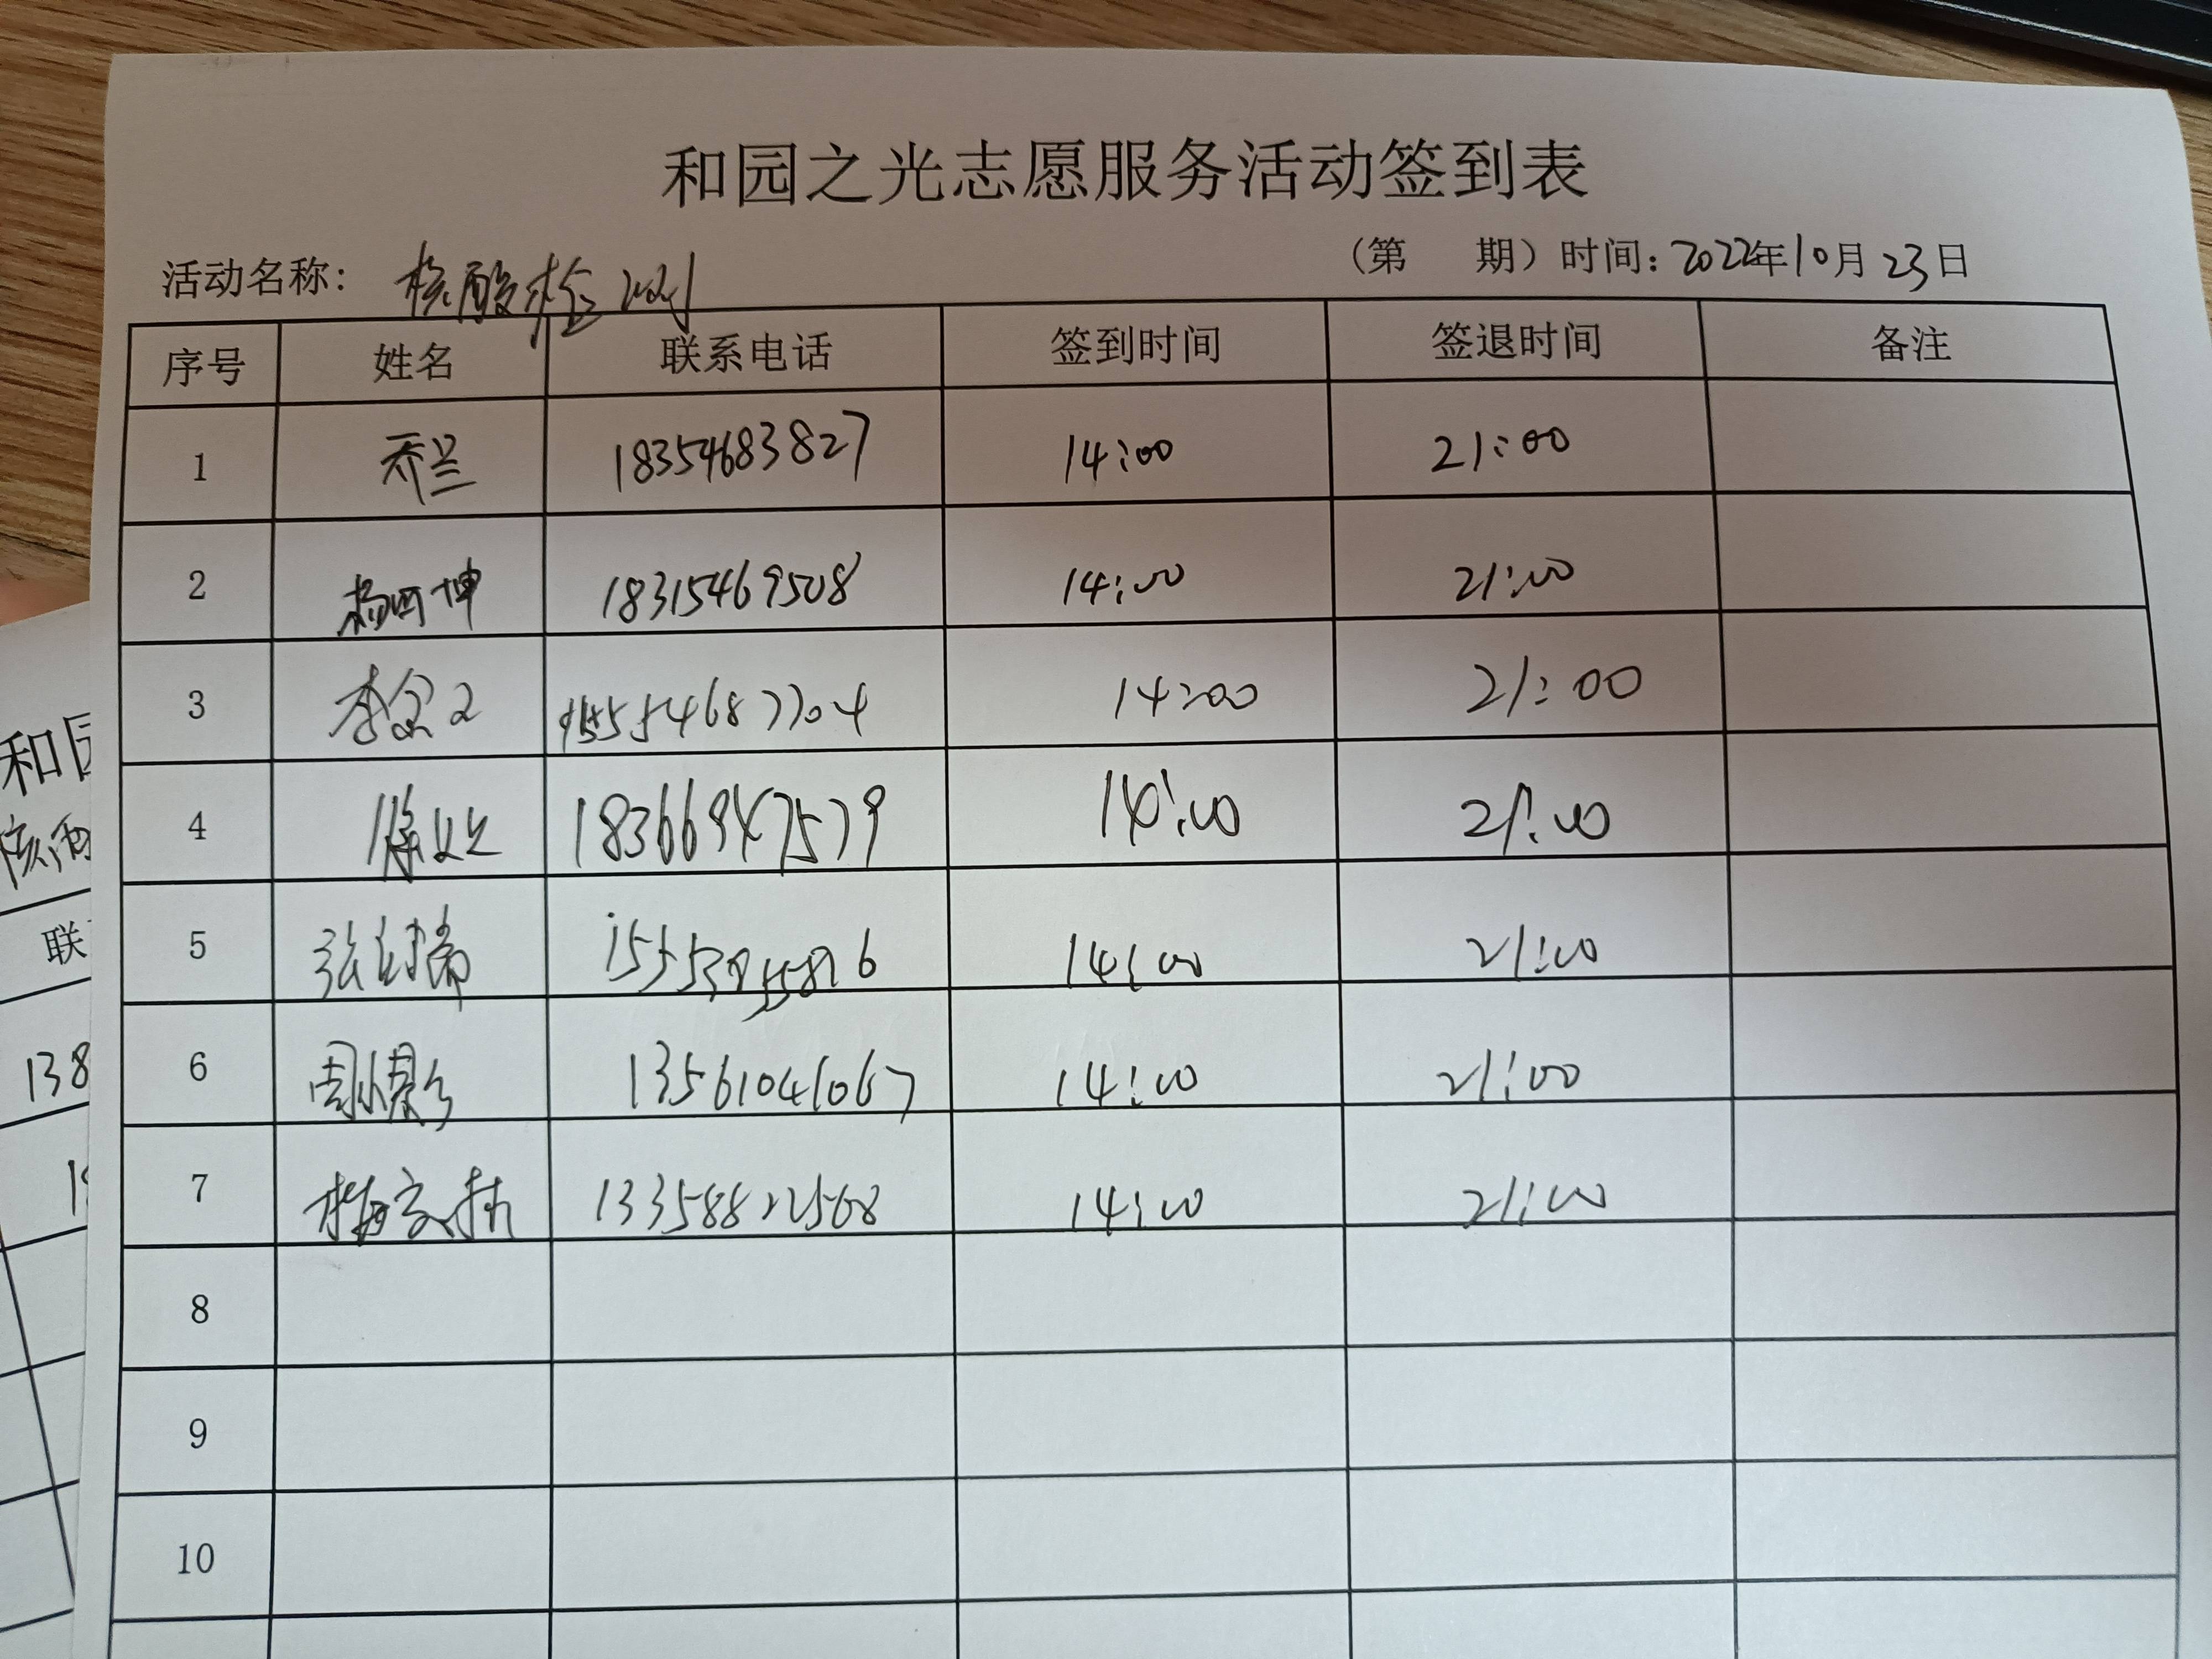 和园之光志愿服务活动签到表
活动名称：核酸检测 （第 期）时间：2022年10月23日
序号 姓名 联系电话 签到时间 签退时间 备注
1 乔兰 18354683827 14:00 21:00
2 杨西坤 18315469508 14:00 21:00
3 李 14:00 21:00
4 18366947579 14:00 21:00
5 张 14:00 21:00
6 周 13561041067 14:00 21:00
7 13358822568 14:00 21:00
8
9
10
和园
联
138